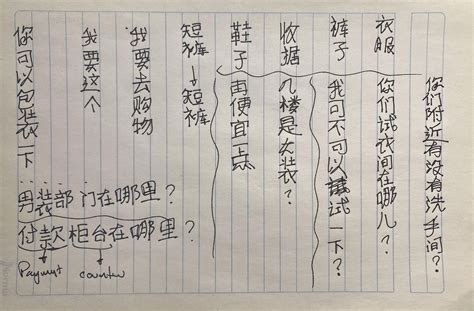 你们附近有没有洗手间？
衣服 你们试衣间在哪儿？
裤子 我可不可以试一下？
收据 几楼是女装？
鞋子 再便宜一点
短裤→短裤
我要去购物
我要这个
你可以包装一下
男装部门在哪里？
付款柜台在哪里？
Payment counter